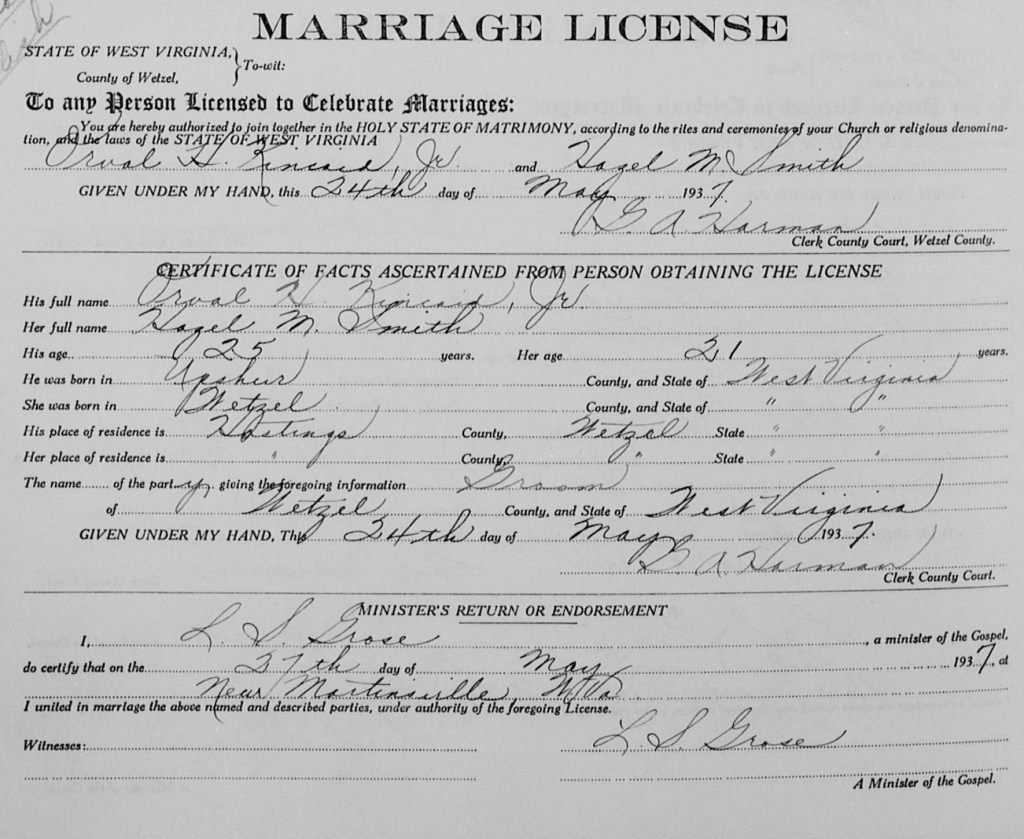 MARRIAGE LICENSE
STATE OF WEST VIRGINIA,
County of Wetzel, } To-wit:
To any Person Licensed to Celebrate Marriages:
You are hereby authorized to join together in the HOLY STATE OF MATRIMONY, according to the rites and ceremonies of your Church or religious denomina-
tion, and the laws of the STATE OF WEST VIRGINIA
Orval H. Kincaid, Jr. and Hazel M. Smith
GIVEN UNDER MY HAND, this 24th day of May 1937.
G. A Harman
Clerk County Court, Wetzel County.
CERTIFICATE OF FACTS ASCERTAINED FROM PERSON OBTAINING THE LICENSE
His full name Orval H. Kincaid, Jr.
Her full name Hazel M. Smith
His age 25 years. Her age 21 years.
He was born in Upshur County, and State of West Virginia
She was born in Wetzel County, and State of " "
His place of residence is Hastings County, Wetzel State " "
Her place of residence is " County, " State " "
The name of the party giving the foregoing information Groom
of Wetzel County, and State of West Virginia
GIVEN UNDER MY HAND, This 24th day of May 1937.
G. A. Harman
Clerk County Court.
MINISTER'S RETURN OR ENDORSEMENT
I, L. S. Grose, a minister of the Gospel,
do certify that on the 27th day of May 1937, at
New Martinsville, W. Va.
I united in marriage the above named and described parties, under authority of the foregoing License.
Witnesses: L. S. Grose
A Minister of the Gospel.